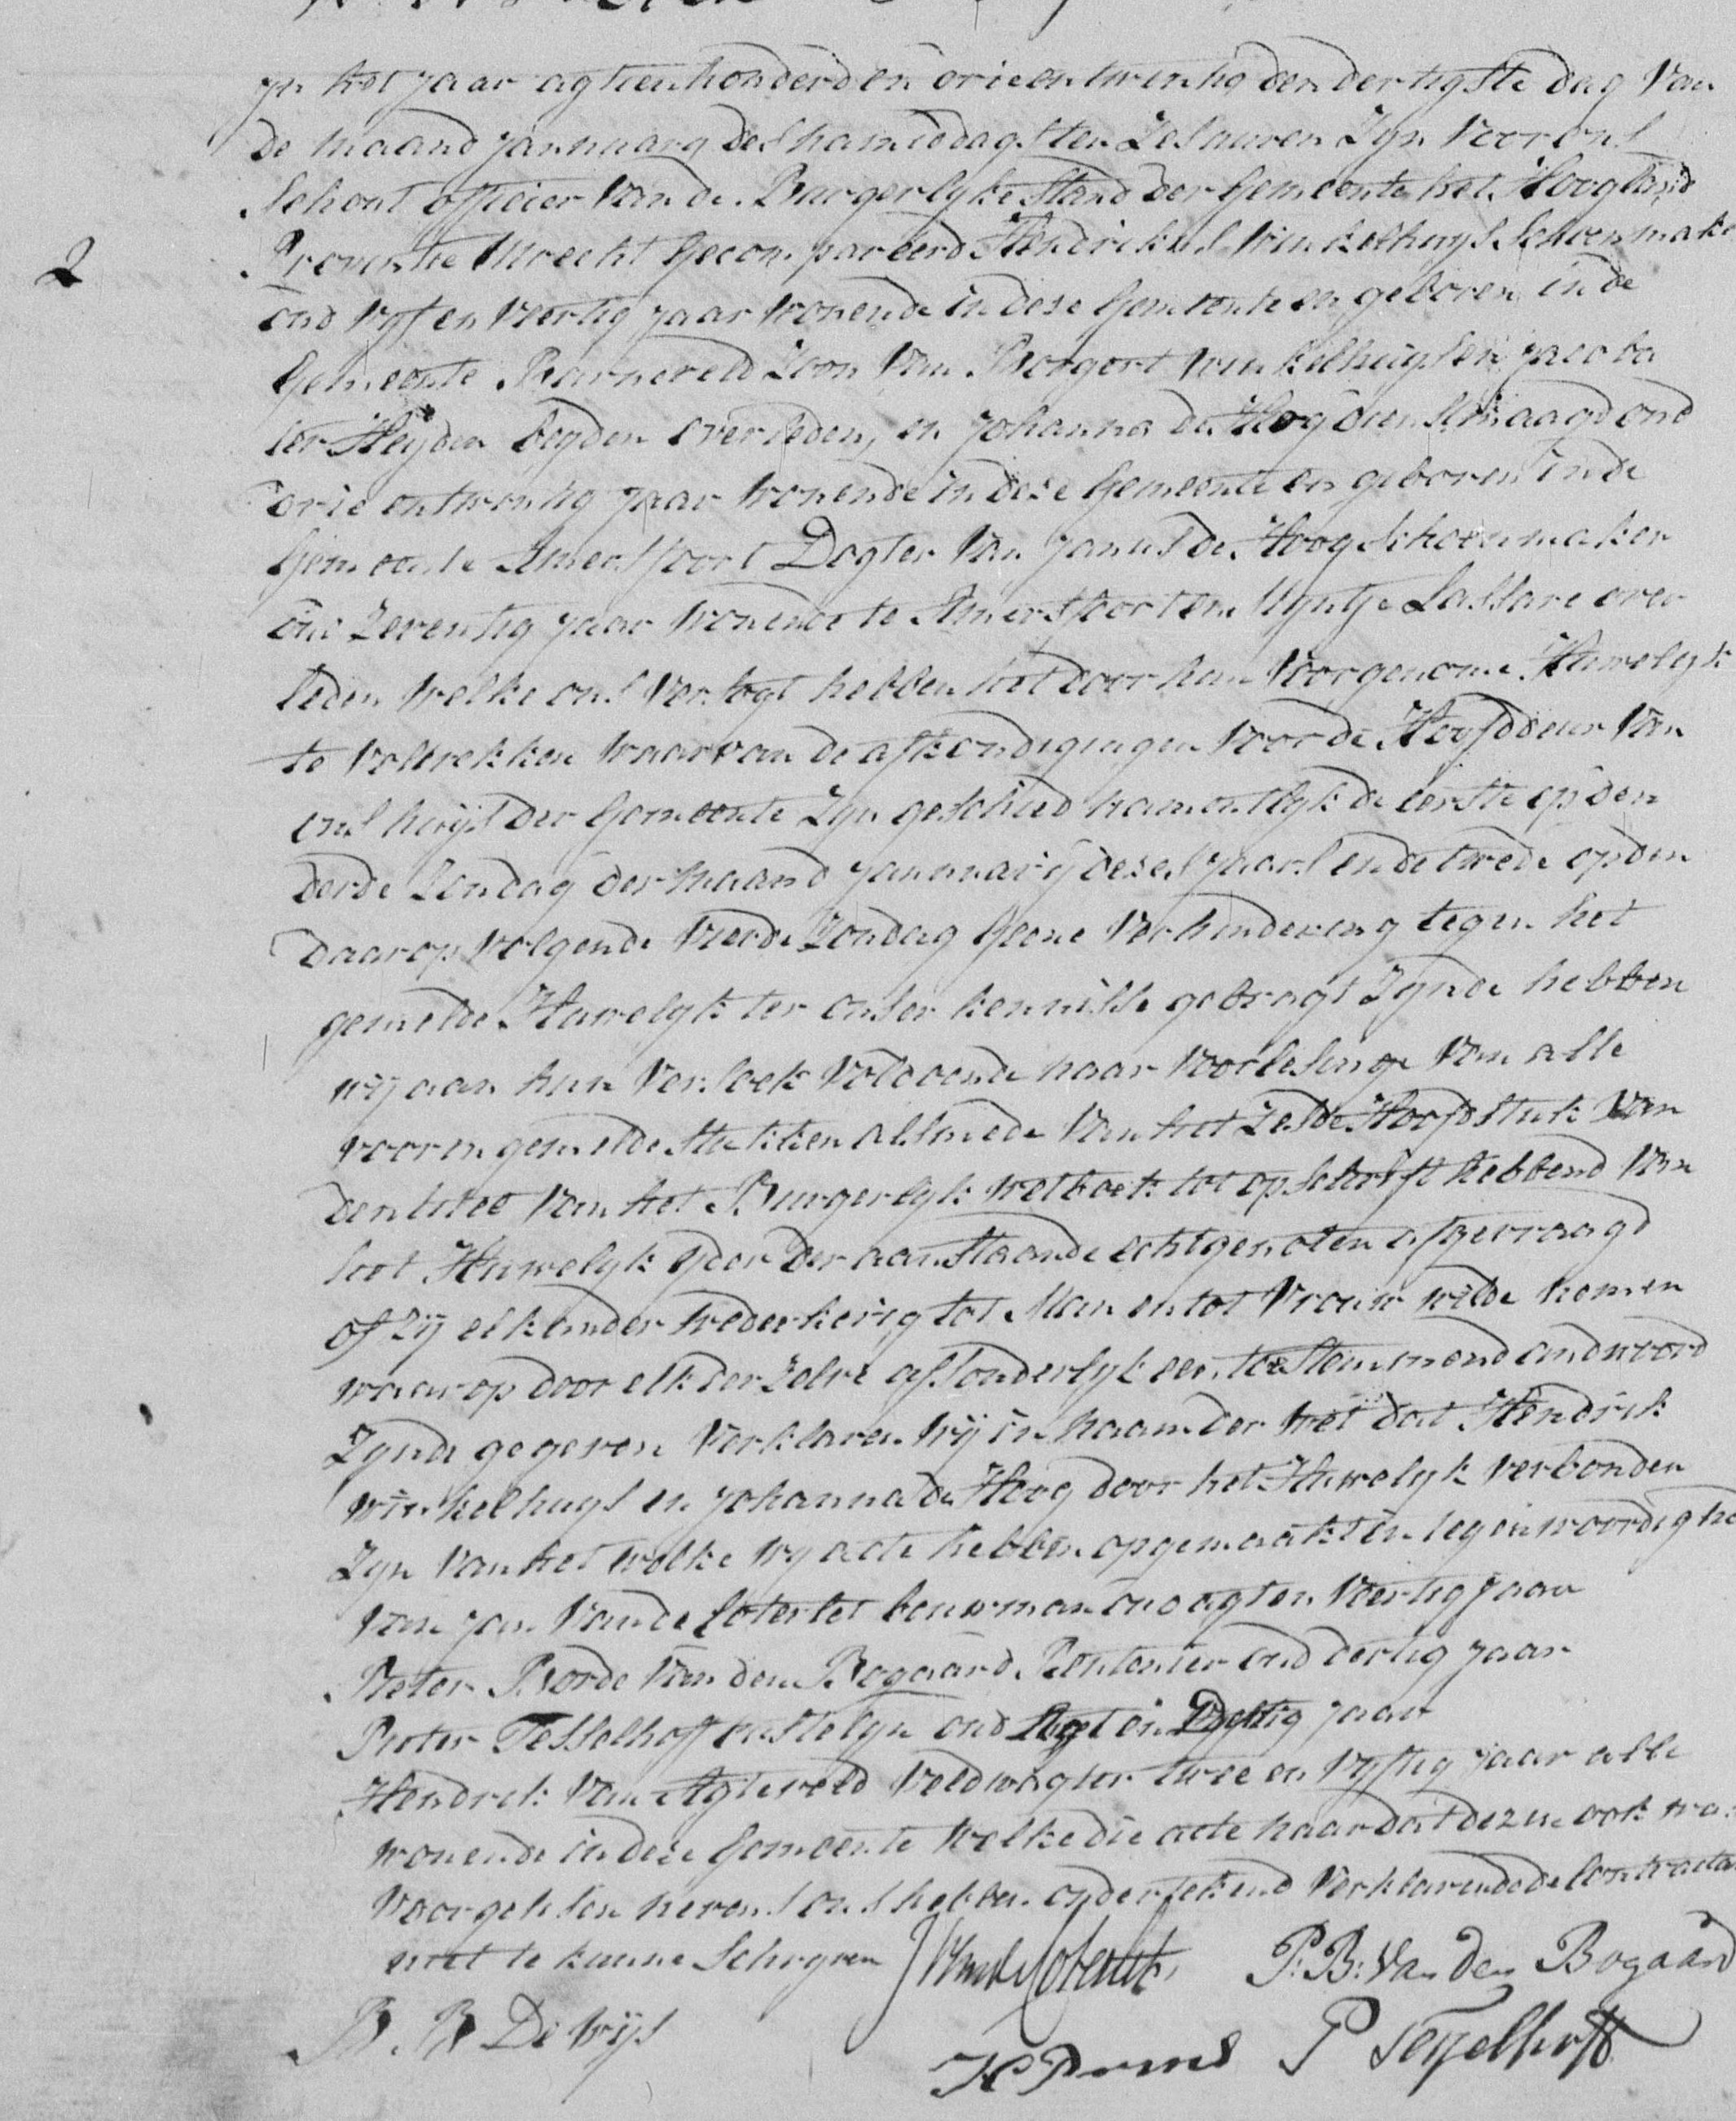 yn het jaar agtien honderd en drie en twintig den dertigste dag Van
de maand January des namiddags ten Zes uuren Zyn Voor ons
Schout officier Van de Burgerlyke Stand der Gemeente het Hoogland
Provintie Utrecht Gecompareerd Hendrikus Winkelhuys Schoenmake
oud Vyf en Veertig jaar Wonende in dese Gemeente en geboren in de
Gemeente Barneveld Zoon Van Boogert Winkelhuys en jacoba
ter Heijden beyden overleden, en johanna de Hoog dienstmaagd oud
drie en twentig jaar Wonende in dese Gemeente en geboren in de
Gemeente Amersfoort Dogter Van Janus de Hoog Schoenmaker
oud Zeventig jaar Wonende te Amersfoort en Uyntje Lassare over
leden Welke ons Versogt hebben het door hun Voorgenome Huwelyk
te Voltrekken Waarvan de afkondigingen Voor de Hoofddeur Van
ons huijs der Gemeente Zyn geschied namentlyk de eerste op den
derde Zondag der maand Januarij deses jaars en de twede op den
daarop Volgende Vierde Zondag Geene Verhindering tegen het
gemelde Huwelyk ter onser kennisse gebragt Zynde hebben
wij aan hun Versoek Voldoende naar Voorlesinge Van alle
vooren gemelde Stukken alsmede Van het Zesde Hoofdstuk Van
den titel Van het Burgerlyk Wetboek tot opschrift hebbend Van
het Huwelyk yder der aanstaande echtgenoten afgevraagd
of Zij elkander Wederkerig tot Man en tot Vrouw wilde nemen
waarop door elk der Zelve afsonderlyk een toestemmend andwoord
Zynde gegeven Verklaren Wij in naam der Wet dat Hendrik
Winkelhuys en johanna de Hoog door het Huwelyk verbonden
Zyn Van het Welke wy acte hebben opgemaakt in tegenwoordighe
Van jan Van de bouwman oud agt en Veertig jaar
Pieter Borde Van den Bogaard Rentenier oud dertig jaar
Pieter Tesselhoff kastelyn oud en jaar
Hendrik Van Agteveld Veldwagter twee en Vyftig jaar alle
wonende in dese Gemeente Welke die acte naar dat dezelve ook was
Voorgelesen nevens ons hebben ondertekend Verklarende de Contracta
niet te kunne Schryven P: B: Van den Bogaard
B. B De Wijs P Tesselhoff